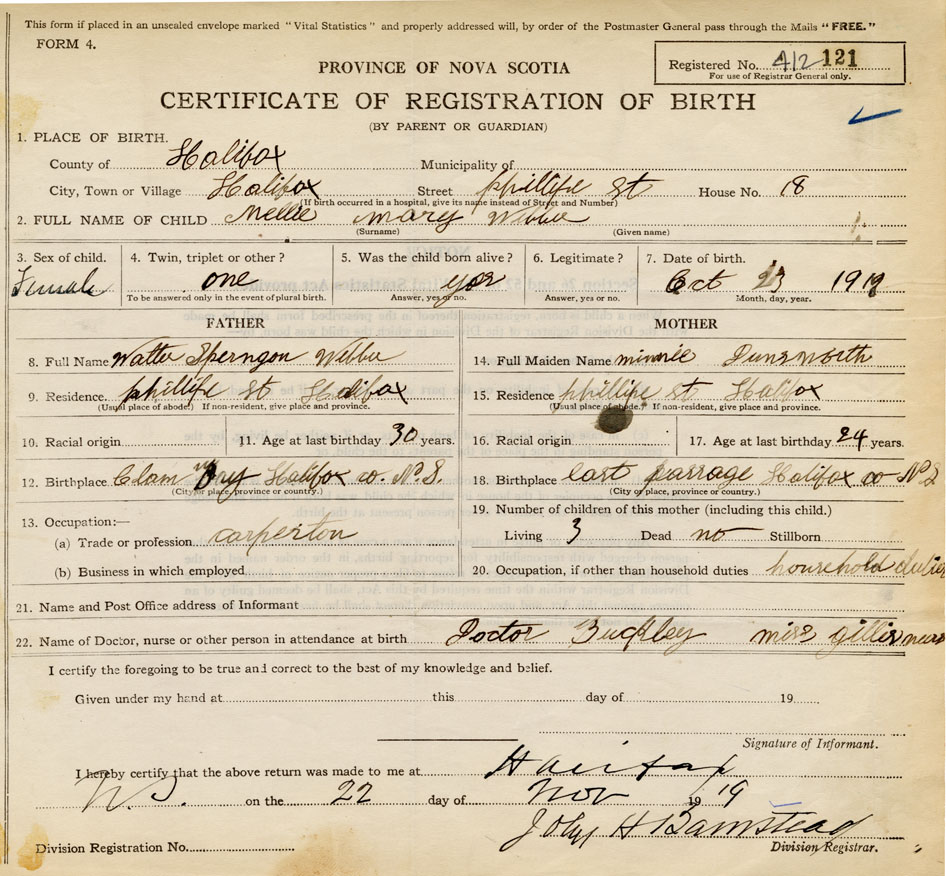 This form if placed in an unsealed envelope marked "Vital Statistics" and properly addressed will, by order of the Postmaster General pass through the Mails "FREE."
FORM 4.
Registered No. 412 121
For use of Registrar General only.
PROVINCE OF NOVA SCOTIA
CERTIFICATE OF REGISTRATION OF BIRTH
(BY PARENT OR GUARDIAN)
1. PLACE OF BIRTH.
County of Halifax Municipality of
City, Town or Village Halifax Street phillips St House No. 18
(If birth occurred in a hospital, give its name instead of Street and Number)
2. FULL NAME OF CHILD Nellie mary Webber
(Surname) (Given name)
3. Sex of child. 4. Twin, triplet or other? 5. Was the child born alive? 6. Legitimate? 7. Date of birth.
Female one yes Oct 23 1919
To be answered only in the event of plural birth. Answer, yes or no. Answer, yes or no. Month, day, year.
FATHER MOTHER
8. Full Name Walter Webber 14. Full Maiden Name minnie Dunsworth
9. Residence. phillips St Halifax 15. Residence phillips St Halifax
(Usual place of abode? If non-resident, give place and province. (Usual place of abode.? If non-resident, give place and province.
10. Racial origin 11. Age at last birthday 30 years. 16. Racial origin 17. Age at last birthday 24 years.
12. Birthplace Clam Bay Halifax co. N.S. 18. Birthplace East passage Halifax co N S
(City or place, province or country.) (City or place, province or country.)
13. Occupation:— 19. Number of children of this mother (including this child.)
(a) Trade or profession. carperton Living 3 Dead no Stillborn
(b) Business in which employed 20. Occupation, if other than household duties household duties
21. Name and Post Office address of Informant
22. Name of Doctor, nurse or other person in attendance at birth Doctor Buckley miss gillis
I certify the foregoing to be true and correct to the best of my knowledge and belief.
Given under my hand at this day of 19
Signature of Informant.
I hereby certify that the above return was made to me at Halifax
N.S. on the 22 day of Nov 1919
John H Barnstead
Division Registration No. Division Registrar.